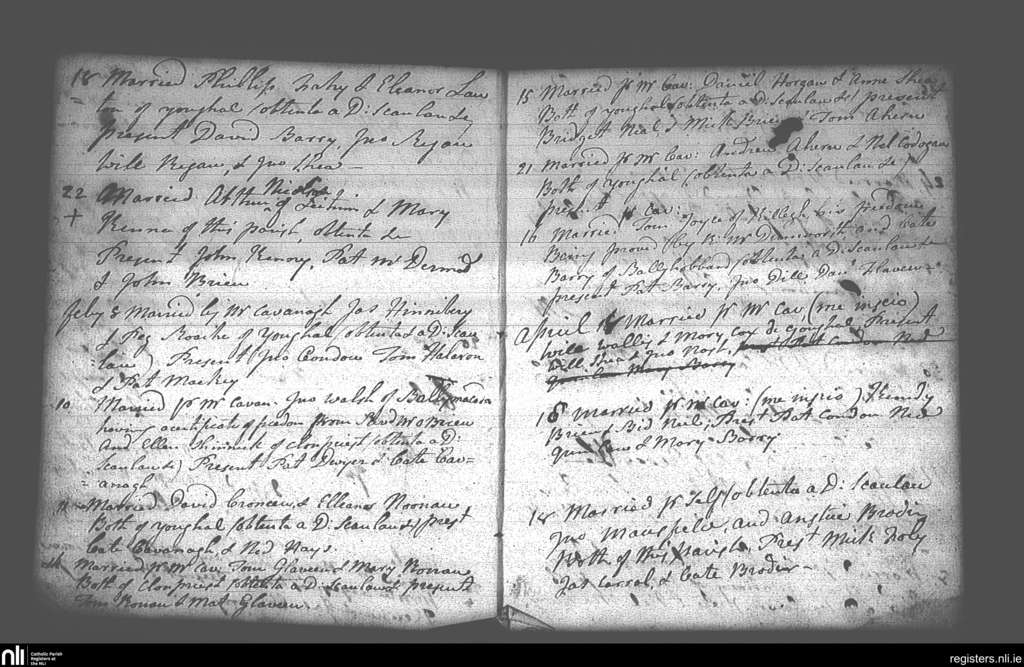 18 Married Phillip Fahy & Eleanor Law
ton of youghal (obtenta a D: Scanlan &c
Present David Barry, Jno Regan
Will Regan, & Jno Shea
22 Married Arthur
+ & Mary
of this parish, obtenta &c
Present John Kenny, Pat McDermod
& John Brien
feby 8 Married by Mr Cavanagh Jas Hinnibery
& Peg Roache of Youghal, obtenta a D: Scan
lan) Present Jno Condon Tom Haleron
& Pat Mackey
10 Married pr Mr Cavan. Jno Walsh of Ballymacoda
having a certificate of freedom from Revd Mr OBrien
And Ellen of Clonpriest (obtenta a D:
Scanlan &c) Present Pat Dwyer & Cate Cav=
=anagh
11 Married David Croneen, & Elleanor Noonan
Both of youghal (obtenta a D: Scanlan &c) prest
Cate Cavanagh, & Ned Hays.
Married pr Mr Cav: Tom Glaveen & Mary Ronan
Both of Clonpriest (obtenta a D: Scanlan &c present
Tom Ronan & Mat Glaveen
15 Married pr Mr Cav: Daniel Horgan & Anne Shea
Both of youghal (obtenta a D: Scanlan &c) present
Bridget Neal & Mick Brien Tom Ahern
21 Married pr Mr Cav: Andrew Ahern & Nel Codogan
Both of youghal (obtenta a D: Scanlan &c)
present
16 Married pr Cav: Tom Joyce of Killeagh his freedom
Being proved by Revd Mr and Cate
Barry of (obtenta a D: Scanlan &c
present Pat Barry, Jno Dill Danl Flaven=
April 18 Married pr Mr Cav (me inscio)
Will Wallis & Mary Cox de youghal, Present
Will Shea & Jno Nash, Prest Pat Condon Ned
Mary Barry
18 Married pr Mr Cav: (me inscio)
Brien & Bid Neil, Prest Pat Condon Ned
Quinlan & Mary Barry
18 Married pr Self (obtenta a D: Scanlan
Jno Mansfield, and Anstie Brodir
Both of this Parish, Prest Mick Foly
Jas Carrol, & Cate Brodir
nli
Catholic Parish
Registers at
the NLI
registers.nli.ie